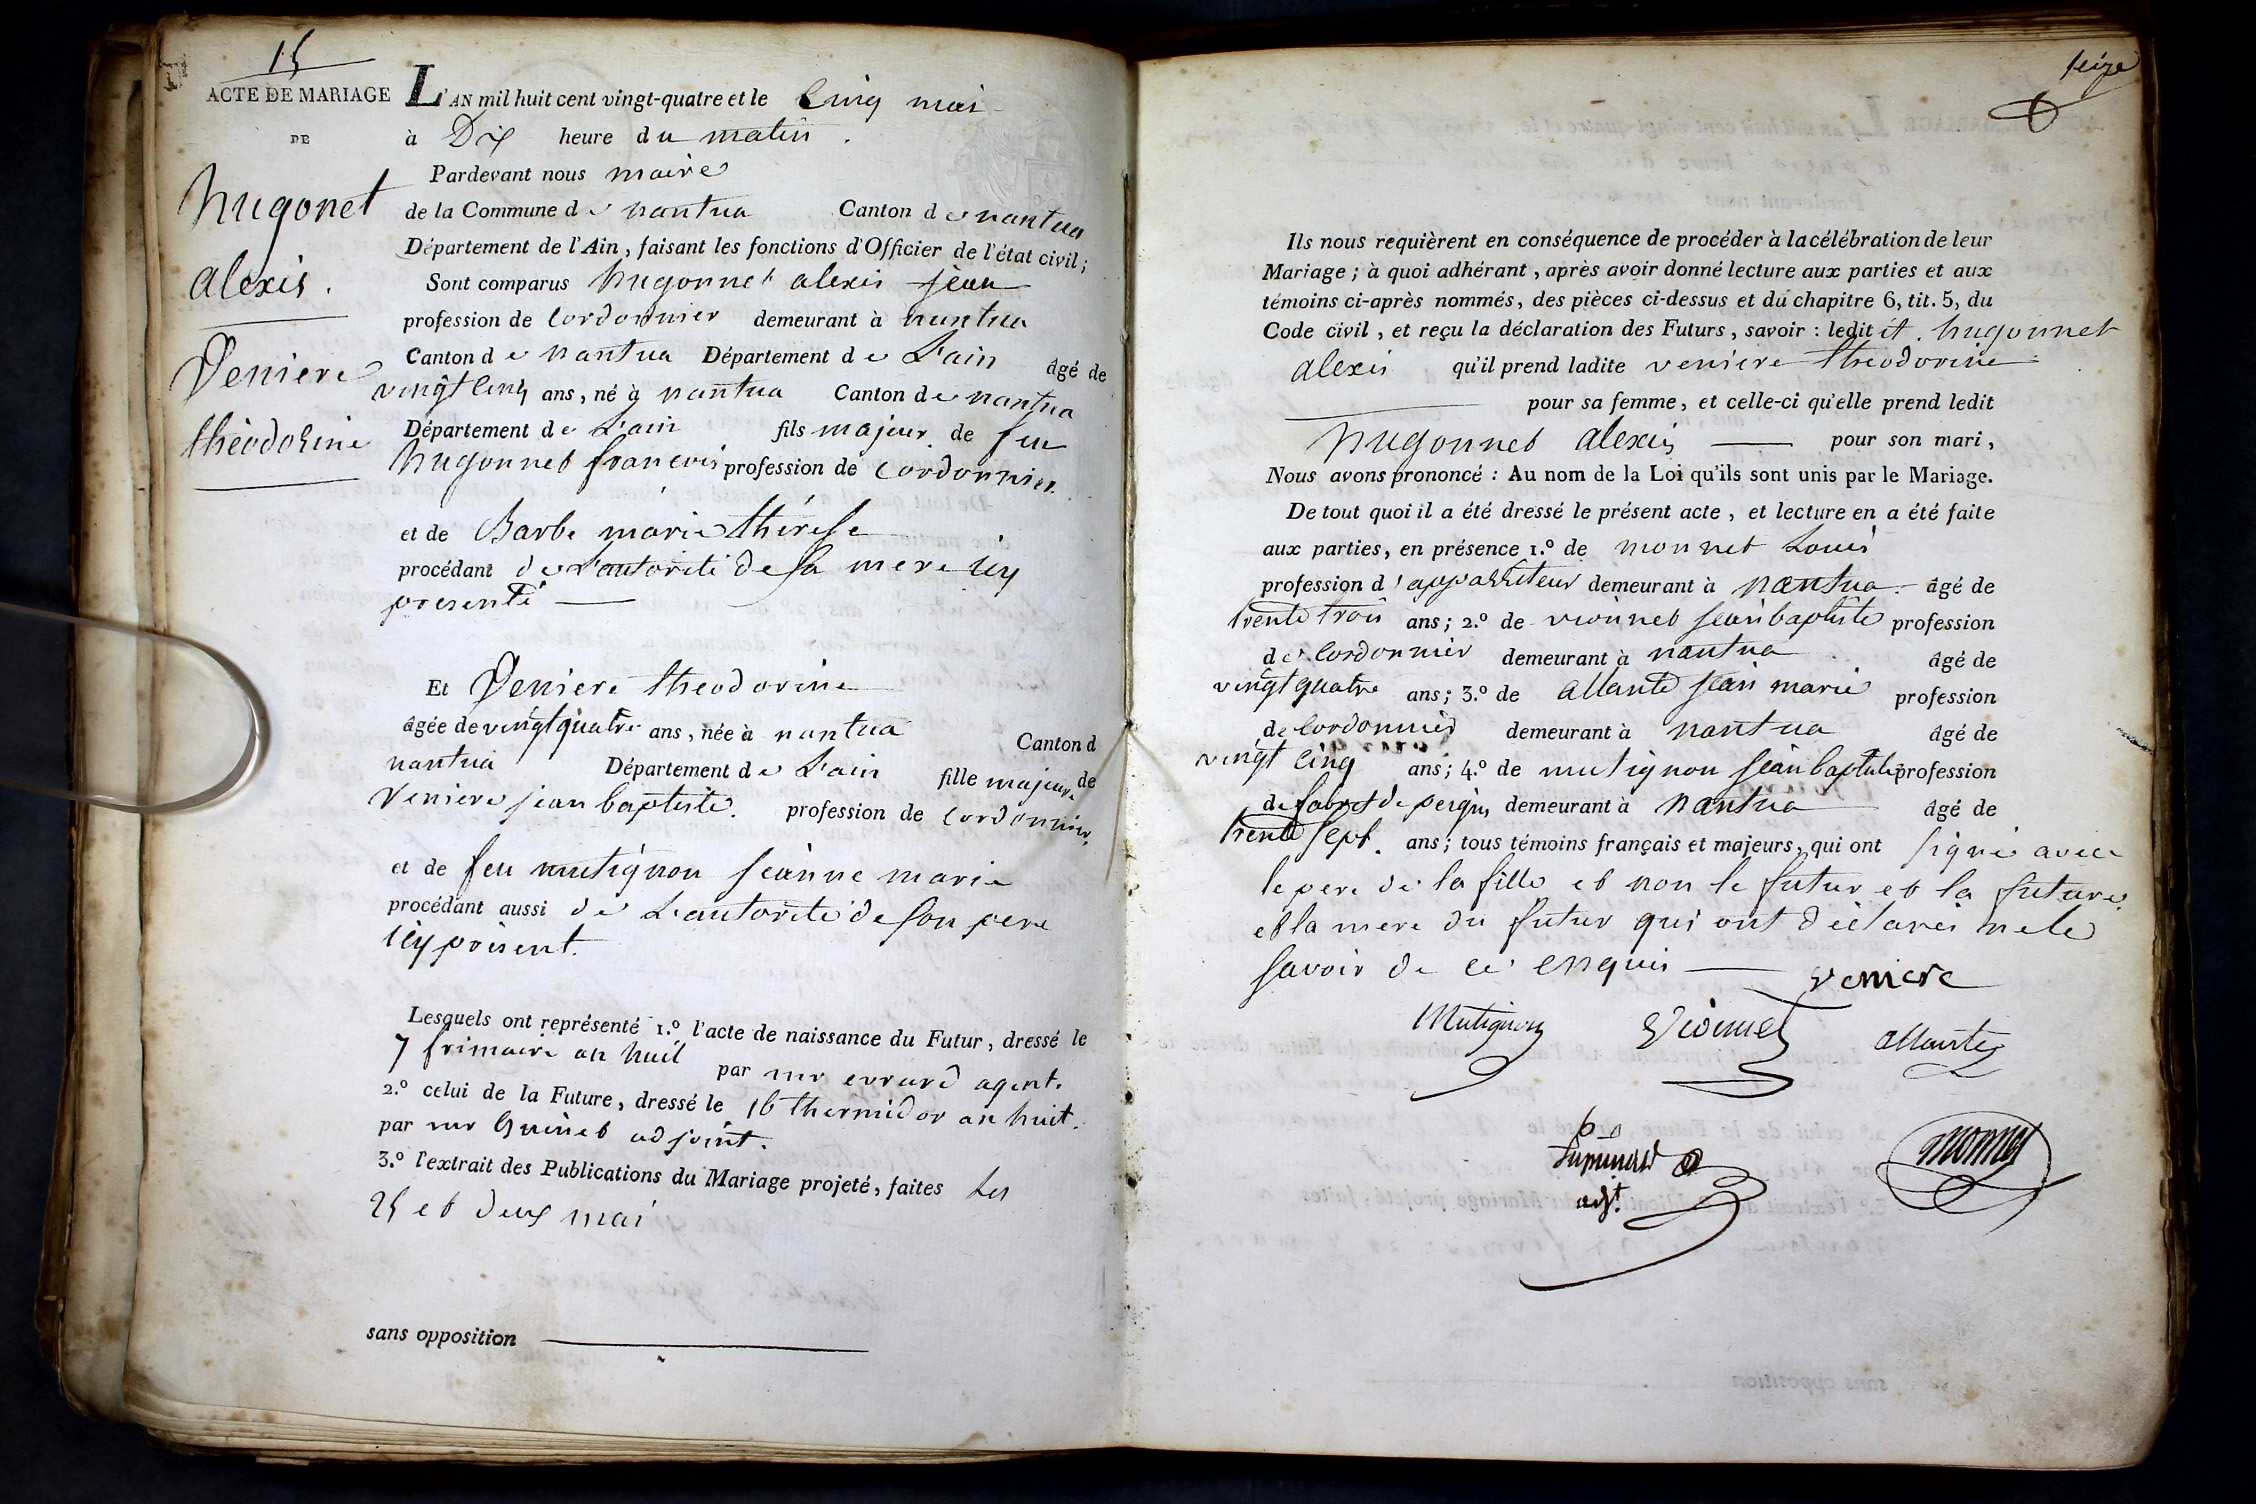 15
ACTE DE MARIAGE
DE
hugonet
alexis.
Veniere
théodorine
L'AN mil huit cent vingt-quatre et le Cinq mai
à Dix heure du matin.
Pardevant nous maire
de la Commune de nantua Canton de nantua
Département de l'Ain, faisant les fonctions d'Officier de l'état civil;
Sont comparus hugonnet alexis jean
profession de Cordonnier demeurant à nantua
Canton de nantua Département de L'ain âgé de
vingt Cinq ans, né à nantua Canton de nantua
Département de L'ain fils majeur de feu
hugonnet francois profession de Cordonnier.
et de Barbe marie thérese
procédant de L'autorité de sa mere icy
presente
Et Veniere theodorine
âgée de vingt quatre ans, née à nantua Canton d
nantua Département de L'ain fille majeure de
Veniere jean baptiste. profession de Cordonnier.
et de feu mutignon jeanne marie
procédant aussi de L'autorité de son pere
icy présent.
Lesquels ont représenté 1.º l'acte de naissance du Futur, dressé le
7 frimaire an huit par mr errard agent.
2.º celui de la Future, dressé le 16 thermidor an huit.
par mr Guinet adjoint.
3.º l'extrait des Publications du Mariage projeté, faites Les
25 et deux mai
sans opposition
seize
Ils nous requièrent en conséquence de procéder à la célébration de leur
Mariage; à quoi adhérant, après avoir donné lecture aux parties et aux
témoins ci-après nommés, des pièces ci-dessus et du chapitre 6, tit. 5, du
Code civil, et reçu la déclaration des Futurs, savoir: ledit hugonnet
alexis qu'il prend ladite veniere theodorine
pour sa femme, et celle-ci qu'elle prend ledit
hugonnet alexis pour son mari,
Nous avons prononcé: Au nom de la Loi qu'ils sont unis par le Mariage.
De tout quoi il a été dressé le présent acte, et lecture en a été faite
aux parties, en présence 1.º de monnet Louis
profession d'appariteur demeurant à nantua. âgé de
trente trois ans; 2.º de vionnet jean baptiste profession
de Cordonnier demeurant à nantua âgé de
vingt quatre ans; 3.º de allante jean marie profession
de Cordonnier demeurant à nantua âgé de
vingt cinq ans; 4.º de mutignon jean baptiste profession
de fabrt de peignes demeurant à nantua âgé de
trente sept. ans; tous témoins français et majeurs, qui ont signé avec
le pere de la fille et non le futur et la future
et la mere du futur qui ont déclarés ne le
savoir de ce enquis
veniere
Mutignon Vionnet allante
adjt. monnet